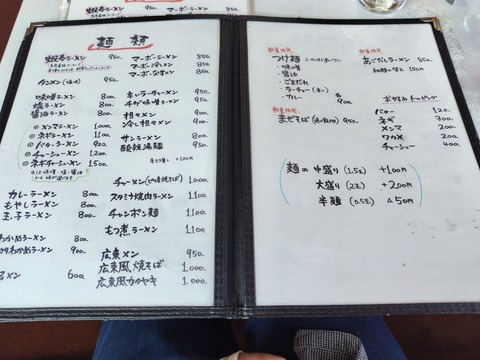 麺類
950.
マーボーラーメン 850.
マーボー冷しメン
マーボーなすメン
タンメン(塩味) 850.
味噌ラーメン 800.
塩ラーメン 800.
醤油ラーメン
辛いラーチャーメン
チゲ味噌ラーメン 950.
担々メン 900.
冷し担々メン 950.
◎ メンマラーメン 1000.
◎ ネギラーメン 1100.
◎ バターラーメン 920.
◎ チャーシューメン 1200.
◎ ネギチャーシューメン 1500.
サンラーメン 800.
酸辣湯麺 950.
カレーラーメン 800.
もやしラーメン 800.
玉子ラーメン 800.
わかめラーメン 800.
900.
600.
チャーメン 1,000.
スタミナ焼肉ラーメン 1,100
チャンポン麺 1,100
もつ煮ラーメン 1,100
広東メン 950.
広東風焼そば 1,000.
広東風カタヤキ 1,000.
数量限定
つけ麺
・味噌
・醤油
・ごまだれ
・ラーチャー(辛い)
・カレー
900.
数量限定
まぜそば 900.
数量限定
あごだしラーメン 850.
トッピング
バター 120.
ネギ 300.
メンマ 200.
ワカメ 200.
チャーシュー 400.
麺の中盛り(1.5玉) +100円
大盛り(2玉) +200円
半麺(0.5玉) △50円